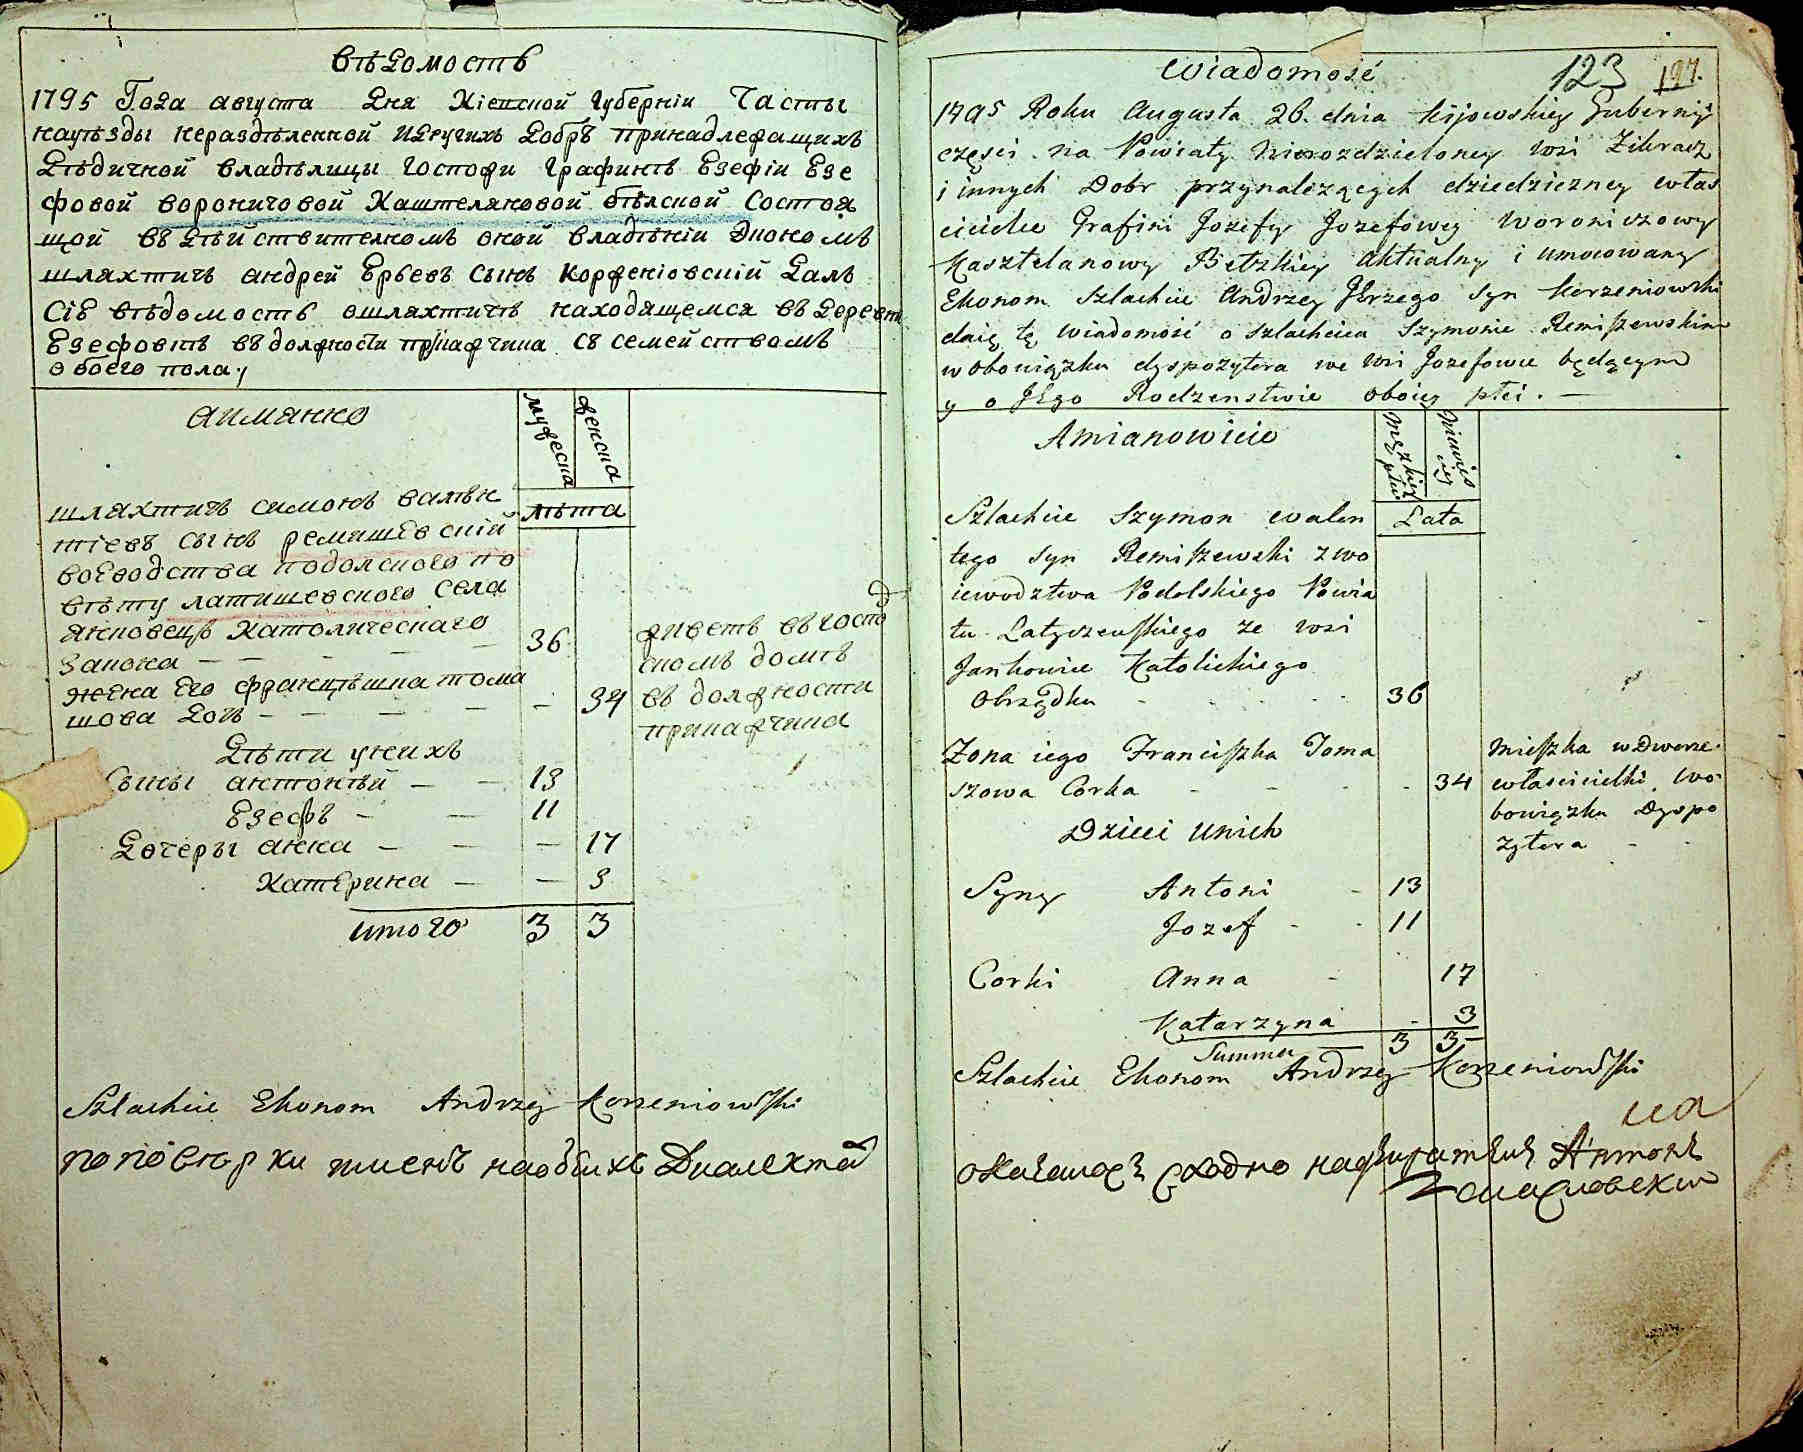 вѣдомость
1795 Года августа дня Кіевской Губерніи Части
науѣзды нераздѣленной идругихъ добръ принадлежащихъ
дѣдичной владѣлицы госпожи графинѣ Езефіи Езе
фовой вороничовой Каштеляновой бѣлской Состоя
щой въ дѣйствителномъ оной владѣніи экономъ
шляхтичъ андрей Ерьевъ сынъ корженіовскій далъ
сіе вѣдомость ошляхтичѣ находящемся въ деревнѣ
Езефовкѣ въ должности приказчика съ семействомъ
обоего пола
аимянно
мужеска
женска
лѣта
шляхтичъ симонъ валѣн
тіевъ сынъ ремишевскій
воеводства подолского по
вѣту латишевского села
янковецъ Католическаго
закона 36
жена его францѣшка тома
шова дочь 34
живетъ въ господ
скомъ домѣ
въ должности
приказчика
дѣти унихъ
Сыны антонѣй 13
Езефъ 11
дочеры анна 17
Катерина 3
итого 3 3
Szlachcic Ekonom Andrzey Korzeniowski
поповѣрки наобѣихъ Диалектахъ
123 197.
Wiadomość
1795 Roku Augusta 26. dnia Kijowskiey Gubernij
części na Powiaty Nierozdzieloney wsi
i innych Dobr przynależących dziedziczney włas
cicielce Grafini Jozefy Jozefowey Woroniczowy
Kasztelanowy Bełzkiey aktualny i umocowany
Ekonom Szlachcic Andrzey JErzego Syn Korzeniowski
daię tę wiadomość o Szlachcicu Szymonie Remiszewskim
w obowiązku dyspozytora we wsi Jozefowce będącym
y o JEgo Rodzenstwie oboiey płci.
Amianowicie
Męzkiey płci
Niewieściey
Lata
Szlachcic Szymon walen
tego Syn Remiszewski z wo
iewodztwa Podolskiego Powia
tu Latyczewskiego ze wsi
Jankowiec Katolickiego
Obrządku 36
Zona iego Franciszka Toma
szowa Corka 34
Mieszka w Dworze
właścicielki w o
bowiązku Dyspo
zytora
Dzieci unich
Syny Antoni 13
Jozef 11
Corki Anna 17
Katarzyna 3
Summa 3 3
Szlachcic Ekonom Andrzey Korzeniowski
оказалось сходно надзиратель Антонъ